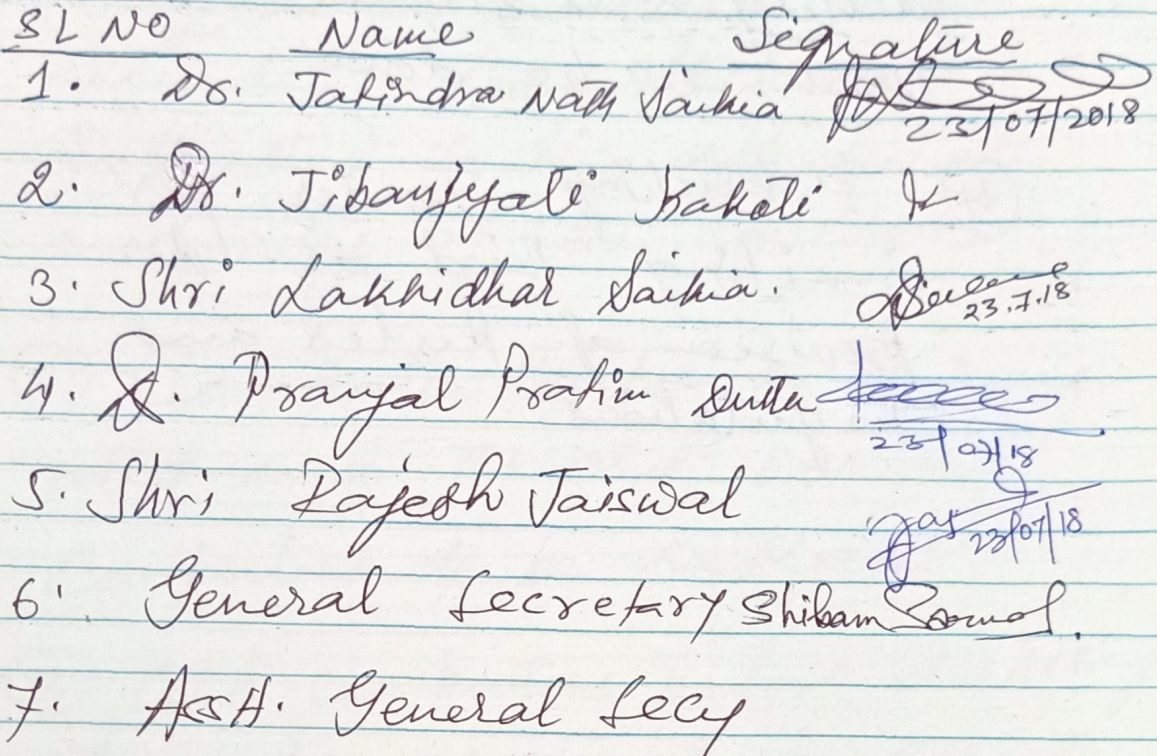 SL NO Name Signature
1. Dr. Jatindra Nath Saikia 23/07/2018
2. Dr. Jibanjyoti Kakoti
3. Shri Lakhidhar Saikia. 23.7.18
4. Dr. Pranjal Pratim Dutta
23/07/18
5. Shri Rajesh Jaiswal 23/07/18
6. General Secretary Shibam
7. Asst. General Secy